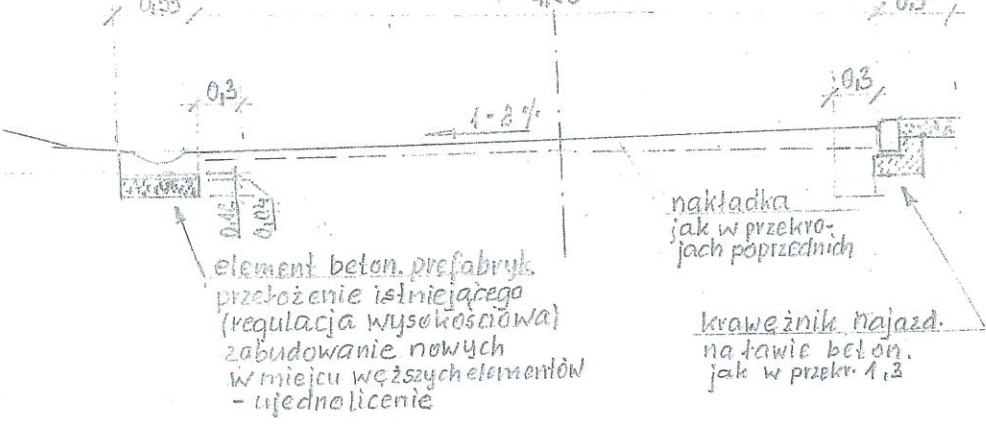 0,55
0,3
1-2%
0,3
nakładka
jak w przekro-
jach poprzednich
element beton. prefabryk.
przełożenie istniejącego
(regulacja wysokościowa)
zabudowanie nowych
w miejcu węższych elementów
- ujednolicenie
krawężnik najazd.
na ławie beton.
jak w przekr. 1,3